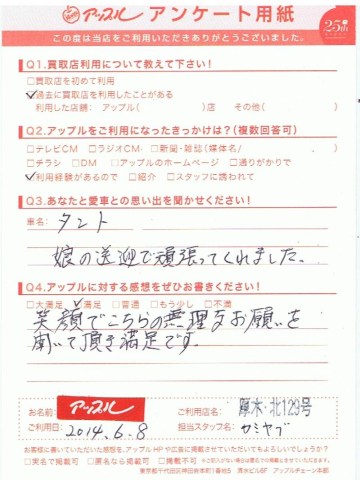 アップル アンケート用紙 25th
この度は当店をご利用いただきありがとうございました。
Q1.買取店利用について教えて下さい!
□買取店を初めて利用
☑過去に買取店を利用したことがある
利用した店舗: アップル( )店 その他( )
Q2.アップルをご利用になったきっかけは?(複数回答可)
□テレビCM □ラジオCM □新聞・雑誌(媒体名/ )
□チラシ □DM □アップルのホームページ □通りがかりで
☑利用経験があるので □紹介 □スタッフに誘われて
Q3.あなたと愛車との思い出を聞かせください!
車名: タント
娘の送迎で頑張ってくれました。
Q4.アップルに対する感想をぜひお書きください!
□大満足 ☑満足 □普通 □もう少し □不満
笑顔でこちらの無理なお願いを
聞いて頂き満足です。
お名前: アップル
ご利用店名: 厚木・北129号
ご利用日: 2014.6.8
担当スタッフ名: カミヤブ
お客様に書いていただいた感想を、アップルHPや広告に掲載させていただいてもよろしいでしょうか?
□実名で掲載可 □匿名なら掲載可 □掲載不可
東京都千代田区神田美本町1番地5 清水ビル8F アップルチェーン本部